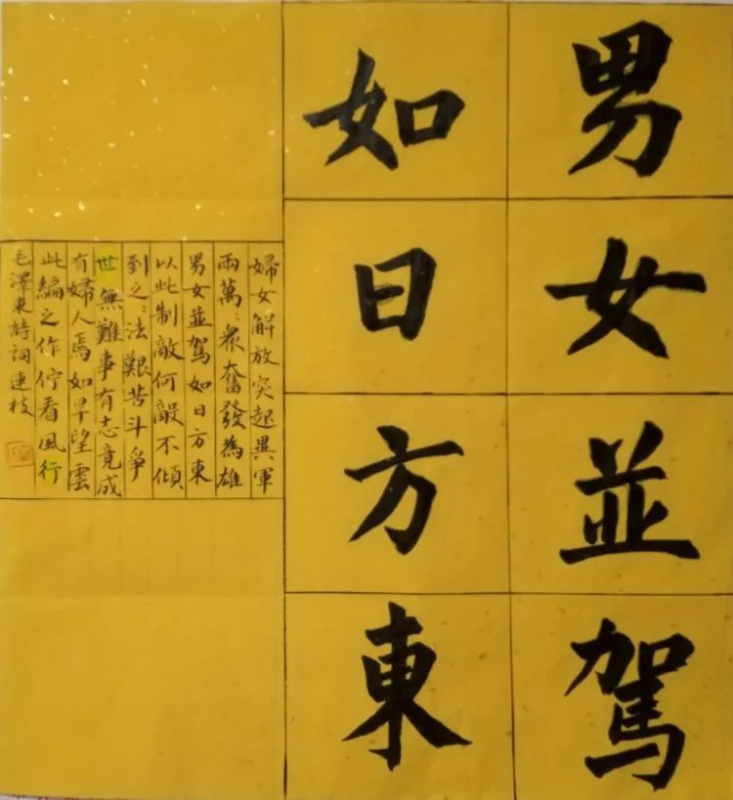 男女並駕
如日方東
婦女解放突起異軍
兩萬〻衆奮發為雄
男女並駕如日方東
以此制敵何敵不傾
到之〻法艱苦斗爭
世無難事有志竟成
有婦人焉如旱望雲
此編之作佇看風行
毛澤東詩詞連枝